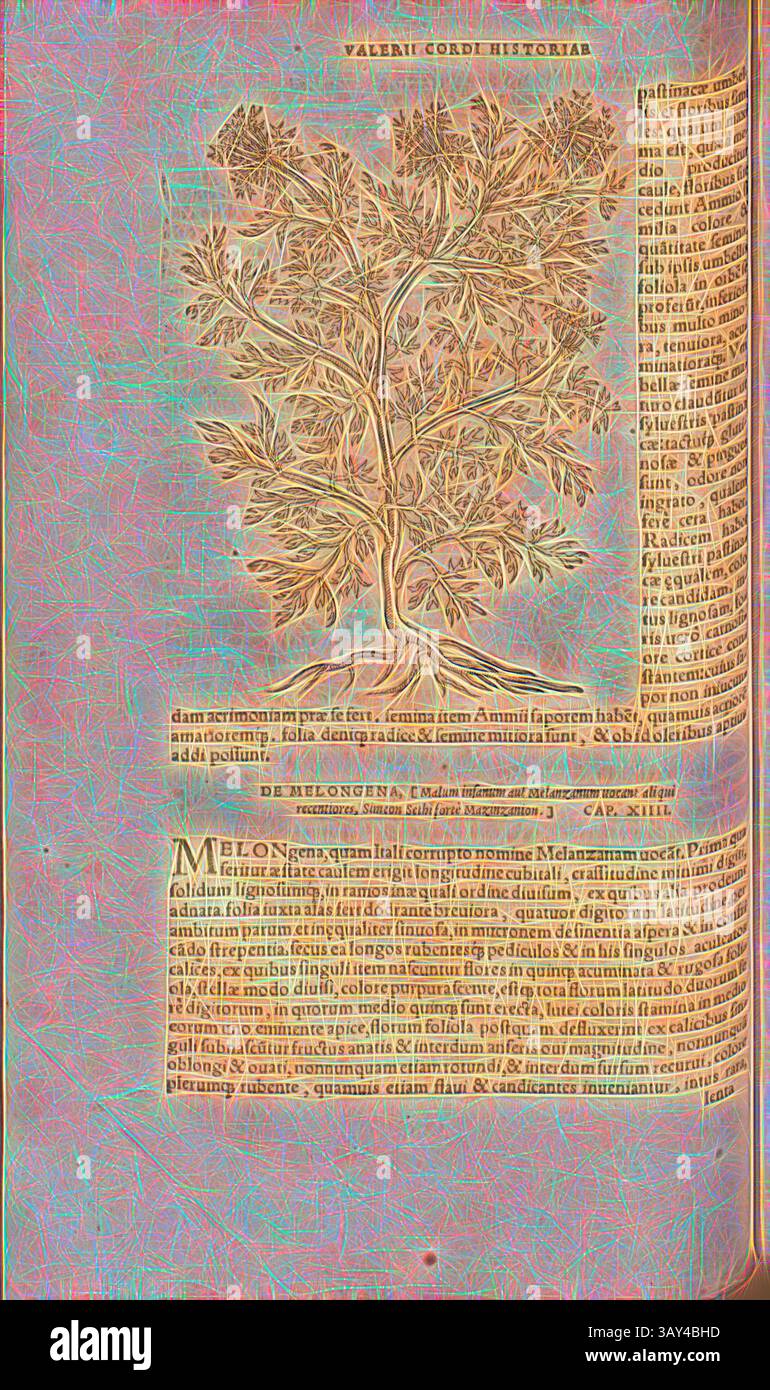 VALERII CORDI HISTORIAE
pastinacæ umbel
lis, ei floribus simi
les, quarum maxi
ma est, quæ me
dio producitur
caule, floribus suc
cedunt Ammio si
milia colore, &
quãtitate semina
sub ipsis umbellis
foliola in orbẽ
profert, inferiori
bus multo mino
ra, tenuiora, acu
minatioraq́;
bellæ semine ma
turo clauduntur
syluestris pastina
cæ: tactuq́; gluti
nosæ & pingues
sunt, odore non
ingrato, qualem
fere cera habet
Radicem habet
syluestri pastina
cæ ęqualem, colo
re candidam, in
tus lignosam,
ris uero carnosi
ore cortice con
stantem: cuius sa
por non iniucun
dam acrimoniam præ se fert, semina item Ammii saporem habẽt, quamuis acriorẽ
amarioremq́;, folia deniq; radice & semine mitiora sunt, & ob id oleribus aptius
addi possunt.
DE MELONGENA, [Malum insanum aut Melanzanum uocant aliqui
recentiores, Simeon Sethi forte Mazinzanion.] CAP. XIIII.
MELONgena, quam Itali corrupto nomine Melanzanam uocãt. Prima qua
seritur æstate caulem erigit longitudine cubitali, crassitudine minimi digiti,
solidum lignosumq́;, in ramos inæquali ordine diuisum, ex quibus alia prodeunt
adnata. folia iuxta alas fert dodrante breuiora, quatuor digitorum latitudine, per
ambitum parum et inęqualiter sinuosa, in mucronem desinentia aspera & in
cãdo strepentia, secus ea longos rubentesq́; pediculos & in his singulos, aculeatos
calices, ex quibus singuli item nascuntur flores in quinq; acuminata & rugosa foli
ola, stellæ modo diuisi, colore purpurascente, estq́; rota florum latitudo duorum fe
rẽ digitorum, in quorum medio quinq; sunt erecta, lutei coloris stamina, in medio
eorum uno eminente apice, florum foliola postquam defluxerint ex calicibus sin
guli subnascũtur fructus anatis & interdum anseris oui magnitudine, nonnunquã
oblongi & ouati, nonnunquam etiam rotundi, & interdum sursum recurui, colore
plerumq; rubente, quamuis etiam flaui & candicantes inueniantur, intus rara,
lenta
alamy
Image ID: 3AY4BHD
www.alamy.com